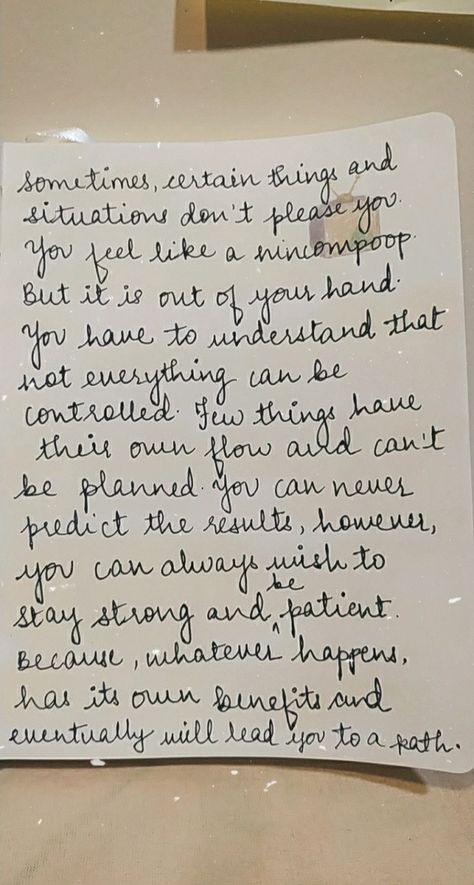 sometimes, certain things and
situations don't please you.
You feel like a nincompoop.
But it is out of your hand.
You have to understand that
not everything can be
controlled. Few things have
their own flow and can't
be planned. You can never
predict the results, however,
you can always wish to
stay strong and be patient.
Because, whatever happens,
has its own benefits and
eventually will lead you to a path.